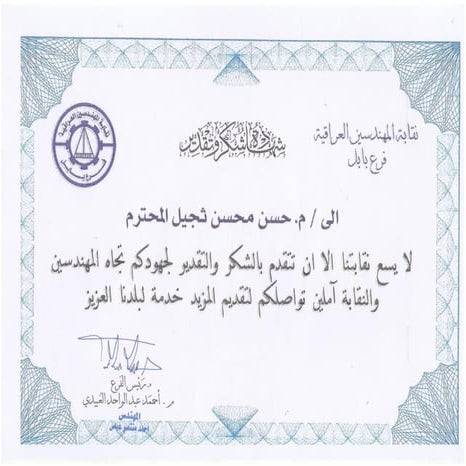 نقابة المهندسين العراقية
فرع بابل
نقابة المهندسين العراقية
شهادة شكر وتقدير
الى / م. حسن محسن ثجيل المحترم
لا يسع نقابتنا الا ان تتقدم بالشكر والتقدير لجهودكم تجاه المهندسين
والنقابة آملين تواصلكم لتقديم المزيد خدمة لبلدنا العزيز
رئيس الفرع
م. أحمد عبد الواحد
المهندس